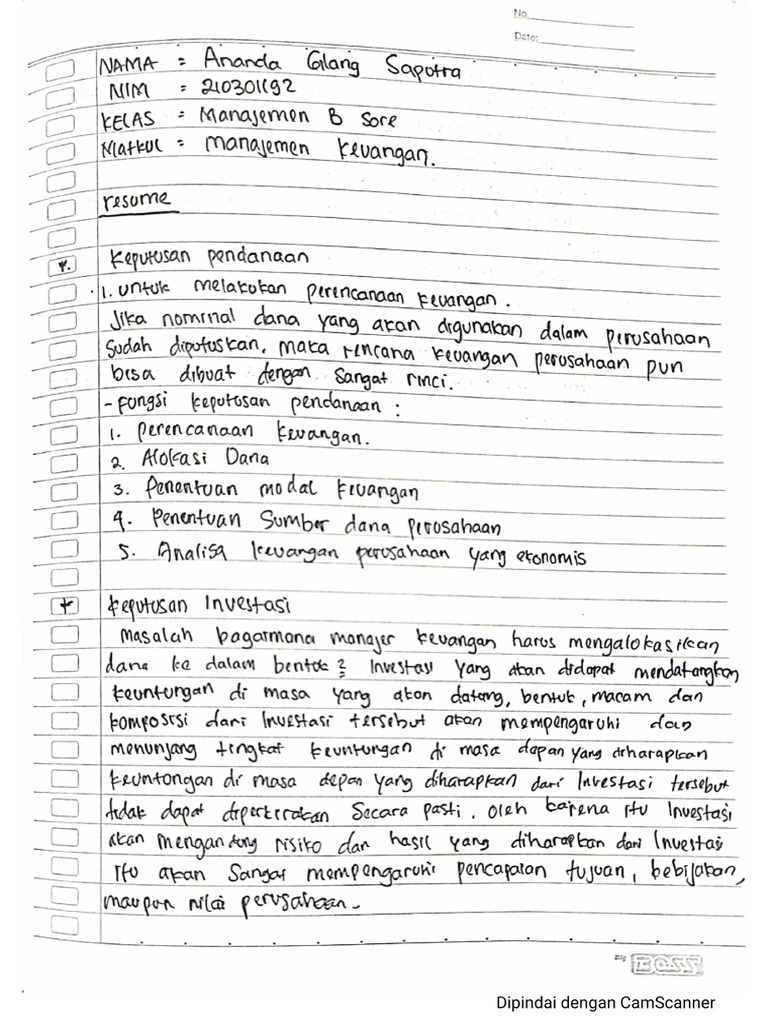 No.
Date:
NAMA : Ananda Gilang Saputra
NIM : 210301192
KELAS = Manajemen B Sore
Matkul = Manajemen Keuangan.
resume
Keputusan pendanaan
1. Untuk melakukan perencanaan keuangan.
Jika nominal dana yang akan digunakan dalam perusahaan
sudah diputuskan, maka rencana keuangan perusahaan pun
bisa dibuat dengan sangat rinci.
- Fungsi keputusan pendanaan :
1. Perencanaan keuangan.
2. Alokasi Dana
3. Penentuan modal keuangan
4. Penentuan Sumber dana perusahaan
5. Analisa keuangan perusahaan yang ekonomis
+ Keputusan Investasi
Masalah bagaimana manajer keuangan harus mengalokasikan
dana ke dalam bentuk2 investasi yang akan didapat mendatangkan
keuntungan di masa yang akan datang, bentuk, macam dan
komposisi dari Investasi tersebut akan mempengaruhi dan
menunjang tingkat keuntungan di masa dapan yang diharapkan
keuntongan di masa depan yang diharapkan dari Investasi tersebut
tidak dapat diperkirakan Secara pasti. Oleh karena itu Investasi
akan mengandung risiko dan hasil yang diharapkan dari Investasi
Itu akan Sangat mempengaruhi pencapaian tujuan, bebijakan,
maupun nilai perusahaan.
BOSS
Dipindai dengan CamScanner